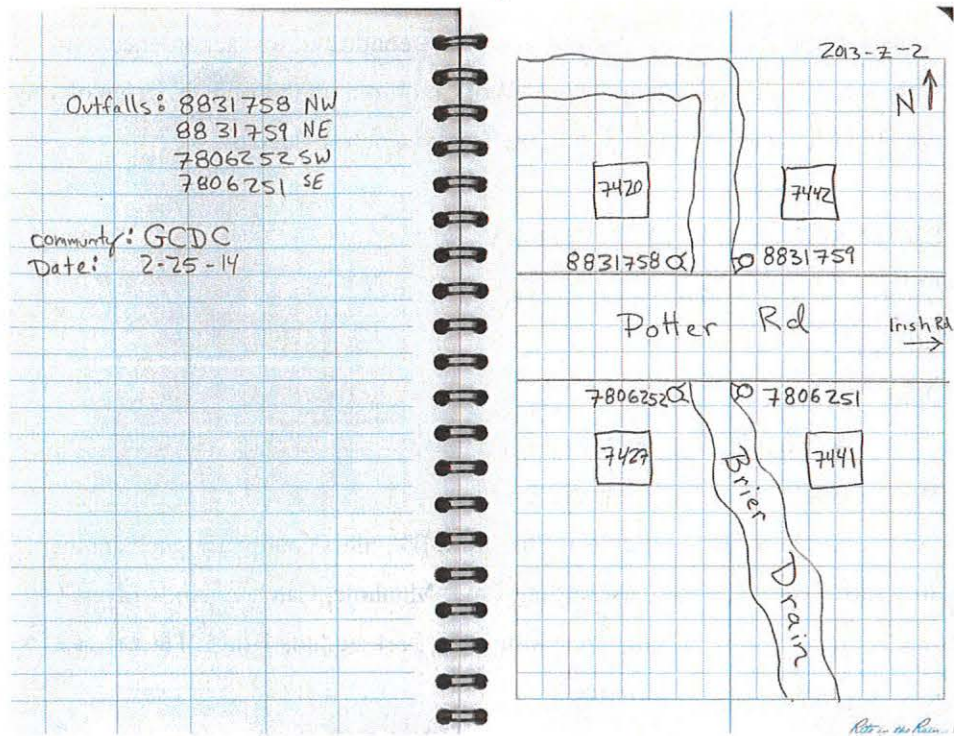 Outfalls: 8831758 NW
8831759 NE
7806252 SW
7806251 SE
Community: GCDC
Date: 2-25-14
2013-Z-2
N
7420
7442
8831758
8831759
Potter Rd
Irish Rd
7806252
7806251
7427
7441
Brier
Drain
Rite in the Rain